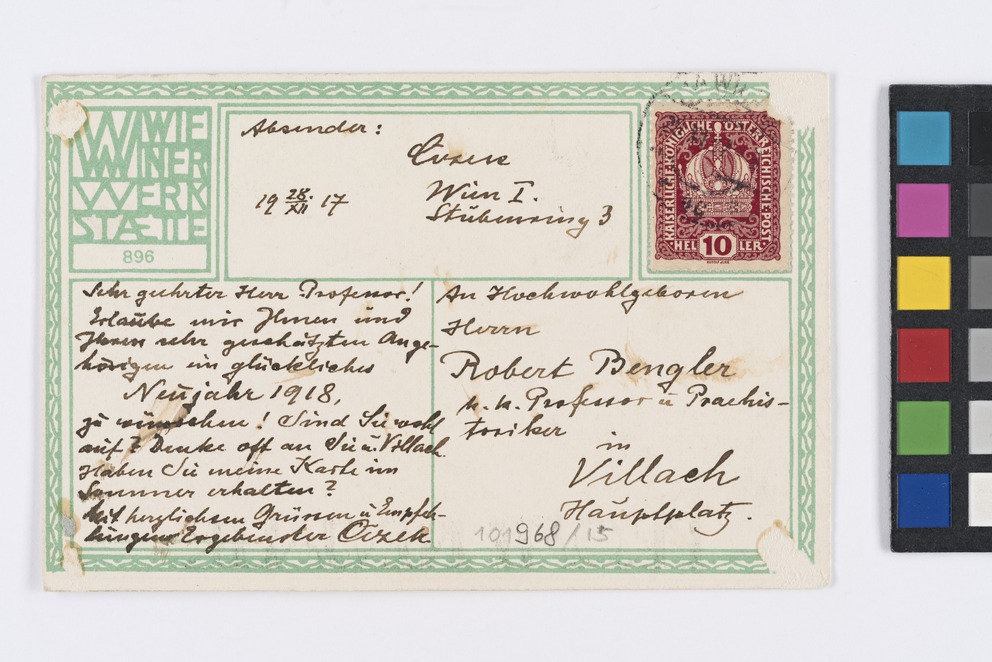 WIE
WINER
WERK
STÆTTE
896
Absender:
Cizek
Wien I.
Stubenring 3
19 28./XII 17
KAISERLICHE·KÖNIGLICHE·ÖSTERREICHISCHE·POST
HEL 10 LER
Sehr geehrter Herr Professor!
Erlaube mir Ihnen und
Ihren sehr geschätzten Ange-
hörigen ein glückliches
Neujahr 1918,
zu wünschen! Sind Sie wohl
auf? Denke oft an Sie u. Villach.
Haben Sie meine Karte im
Sommer erhalten?
Mit herzlichsen Grüssen u Empfeh-
lungen Ergebenster Cizek
An Hochwohlgeboren
Herrn
Robert Bengler
k. k. Professor u Praehis-
toriker
in
Villach
Hauptplatz.
101968/15